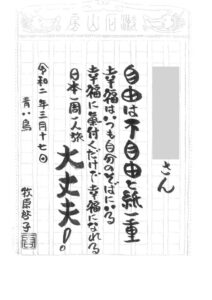 さん
自由は不自由と紙一重
幸福はいつも自分のそばにいる
幸福に氣付くだけで幸福になれる
日本一周一人旅 大丈夫!。
令和二年三月十七日
青い鳥 牧原啓子